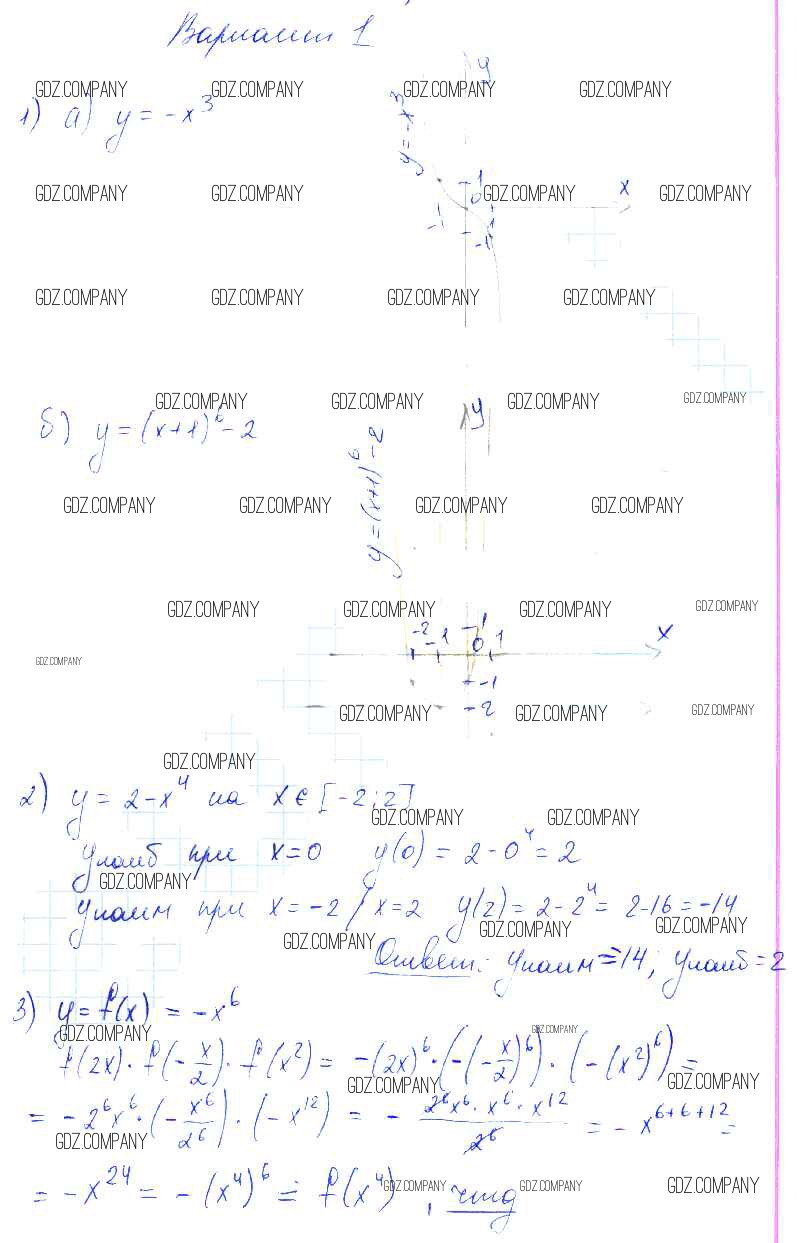 Вариант 1
GDZ.COMPANY GDZ.COMPANY GDZ.COMPANY GDZ.COMPANY
y
1) а) y = -x³
y = -x³
GDZ.COMPANY GDZ.COMPANY GDZ.COMPANY GDZ.COMPANY
1 x
0
-1 1
-1
GDZ.COMPANY GDZ.COMPANY GDZ.COMPANY GDZ.COMPANY
GDZ.COMPANY GDZ.COMPANY GDZ.COMPANY GDZ.COMPANY
б) y = (x+1)⁶ - 2
y
y = (x+1)⁶ - 2
GDZ.COMPANY GDZ.COMPANY GDZ.COMPANY GDZ.COMPANY
GDZ.COMPANY GDZ.COMPANY GDZ.COMPANY GDZ.COMPANY
-2 -1 0 1 x
1
GDZ.COMPANY
-1
-2
GDZ.COMPANY GDZ.COMPANY GDZ.COMPANY
GDZ.COMPANY
2) y = 2 - x⁴ на x ∈ [-2; 2]
GDZ.COMPANY GDZ.COMPANY
yнаиб при x = 0 y(0) = 2 - 0⁴ = 2
GDZ.COMPANY
yнаим при x = -2 / x = 2 y(2) = 2 - 2⁴ = 2 - 16 = -14
GDZ.COMPANY GDZ.COMPANY GDZ.COMPANY
Ответ: yнаим = -14; yнаиб = 2
3) y = f(x) = -x⁶
GDZ.COMPANY GDZ.COMPANY
f(2x) · f(-x/2) · f(x²) = -(2x)⁶ · (-(-x/2)⁶) · (-(x²)⁶) =
GDZ.COMPANY GDZ.COMPANY
= -2⁶x⁶ · (-x⁶/2⁶) · (-x¹²) = - 2⁶x⁶ · x⁶ · x¹²/2⁶ = -x⁶⁺⁶⁺¹² =
GDZ.COMPANY
= -x²⁴ = -(x⁴)⁶ = f(x⁴), чтд
GDZ.COMPANY GDZ.COMPANY GDZ.COMPANY